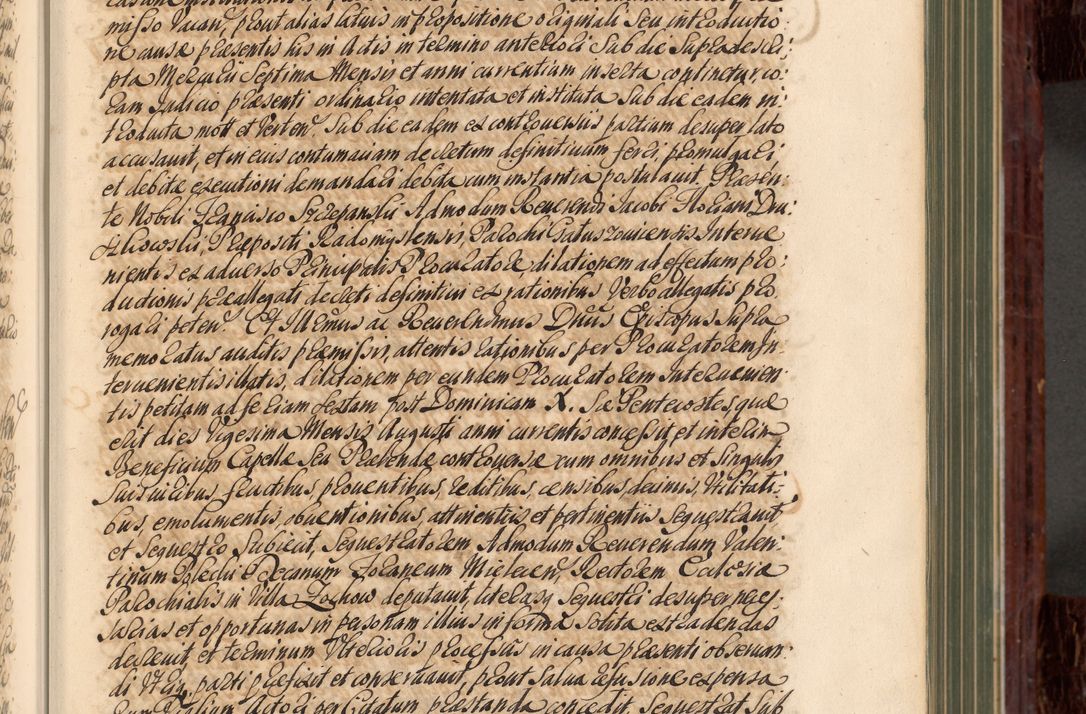 misso Vacan, prout alias latius in propositione originali Seu introductio-
ne causæ præsentis his in Actis in termino anteriori Sub die Supradescri-
pta Mercurii Septima Mensis et anni currentium inserta continetur, co-
ram Judicio præsenti ordinario intentata et instituta Sub die eadem in-
troducta mott et Verten. Sub die eadem ex controversiis partium desuper lato
accusavit, et in eius contumaciam decretum definitivum ferri, promulgari
et debitæ executioni demandari debita cum instantia postulavit. Præsen-
te Nobili Francisco Szczepanski Admodum Reverendi Jacobi Floriani Dru-
żkowski, Præpositi Radomyslensis, Parochi Intervenientis
nientis ex adverso Principalis Procuratore, dilationem ad effectum pro-
ductionis præallegati decreti definitivi ex rationibus Verbo allegatis pro-
rogari peten. Et Illmus ac Reverendmus Dnus Episcopus Supra-
memoratus auditis præmissis, attentis rationibus per Procuratorem In-
tervenientis illatis, dilationem per eundem Procuratorem Intervenien-
tis petitam ad feriam sextam post Dominicam X. Stæ Pentecostes, quæ
erit dies Vigesima Mensis Augusti anni currentis concessit, et interim
Beneficium Capellæ Seu Præbendæ controversæ cum omnibus et Singulis
Suis iuribus, fructibus, proventibus, reditibus, censibus, decimis, Utilitati-
bus, emolumentis, obventionibus, attinentiis et pertinentiis Sequestravit
et Sequestro Subiecit, Sequestratorem Admodum Reverendum Valen-
tinum Decanum Foraneum Mielecen, Rectorem Ecclesiæ
Parochialis in Villa deputavit, literasq Sequestri desuper neces-
sarias et opportunas in personam illius in forma Solita extradendas
decrevit, et terminum Ulterioris processus in causa præsenti observan-
di Utriq parti præfixit et conservavit, prout Salva refusione expensa-
rum Actori per Citatum præstanda concedit, Sequestrat Sub